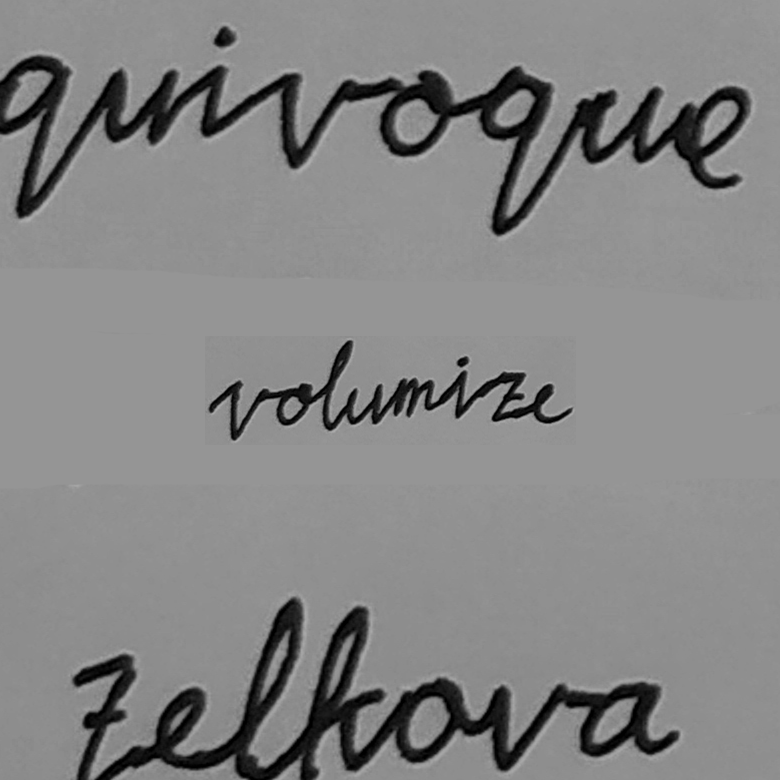 quivoque
volumize
zelkova